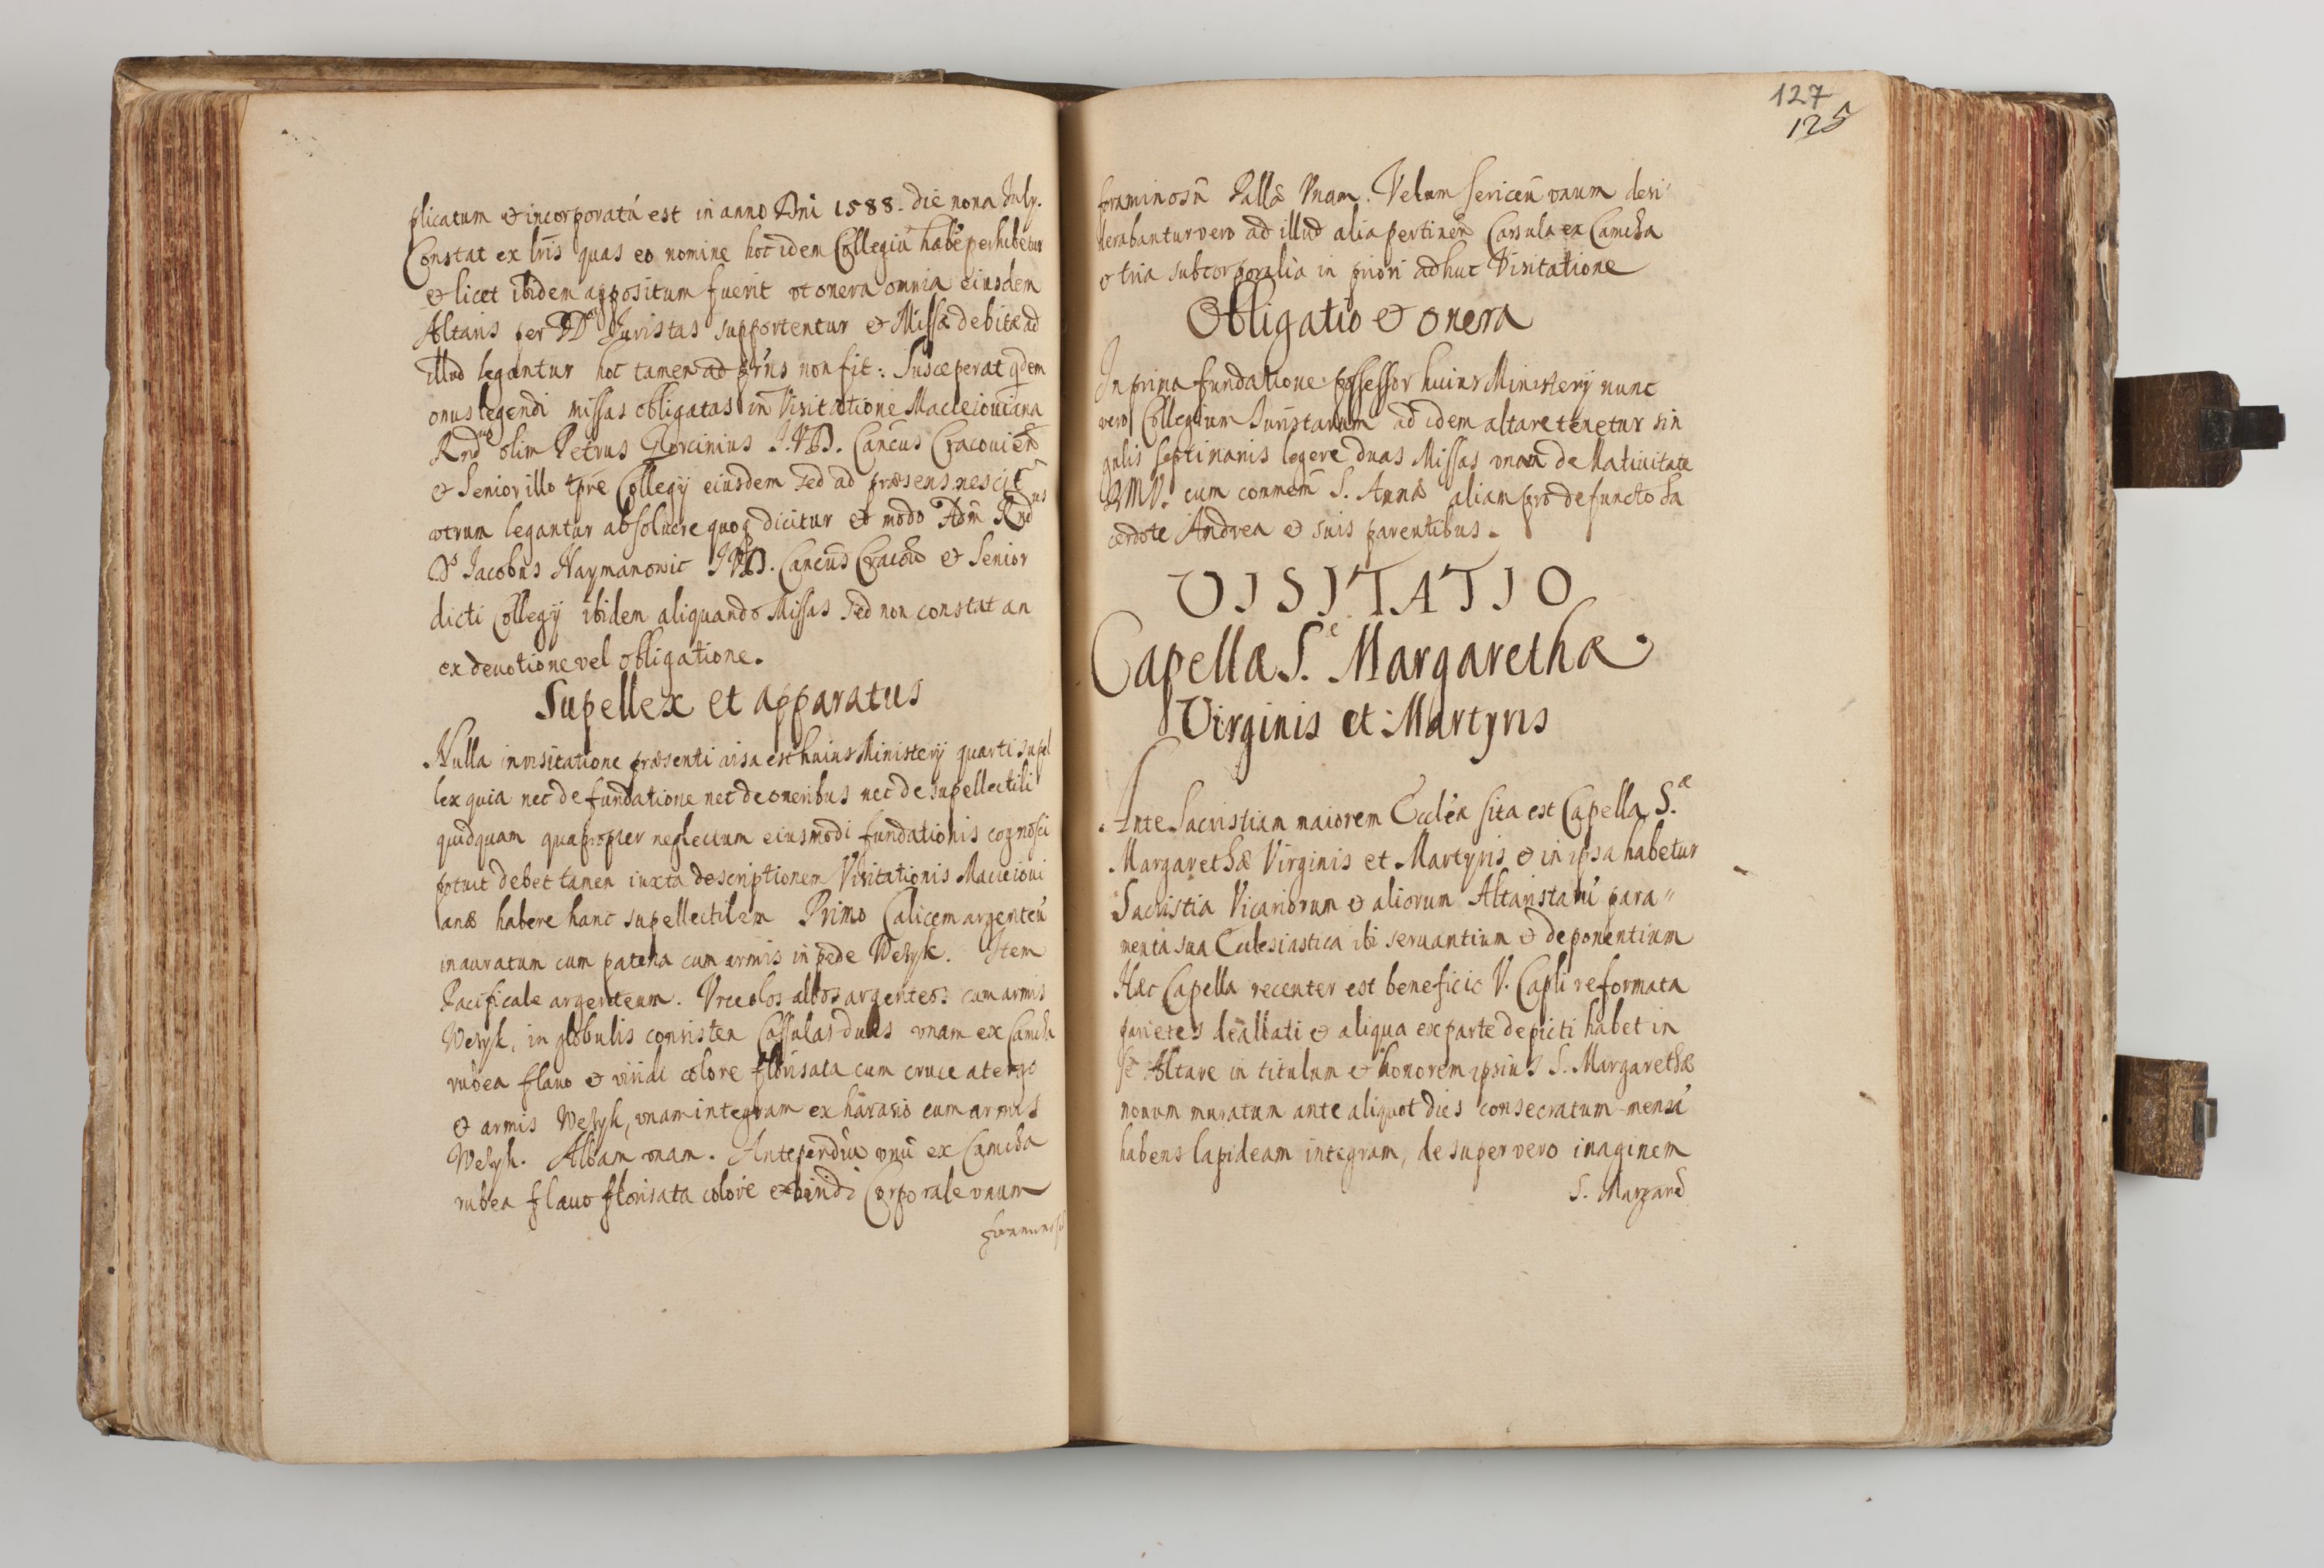 plicatum & incorporatũ est in anno Dni 1588. die nona July.
Constat ex lris quas eo nomine hoc idem Collegiũ habe perhibetur
& licet ibidem appositum fuerit vt onera omnia eiusdem
Altaris per DD. Iuristas supportentur & Missæ debitæ ad
illud legantur hoc tamen ad prns non fit: Susceperat qdem
onus legendi missas obligatas in Visitatione Macieiouiana
Rndus olim Petrus Gorcinius I.V.D. Cancus Cracouien
& Senior illo tpre Collegij eiusdem sed ad præsens nescit
vtrum legantur absoluere quoq dicitur & modo Adm Rndus
Ds Iacobus Naymanowic I.V.D. Cancus Cracou & Senior
dicti Collegij ibidem aliquando Missas sed non constat an
ex deuotione vel obligatione.
Supellex et apparatus
Nulla in visitatione præsenti visa est huius Ministerij quarti supel
lex quia nec de fundatione nec de oneribus nec de supellectili
quidquam quapropter neglectum eiusmodi fundationis cognosci
potuit debet tamen iuxta descriptionem Visitationis Macieioui
anæ habere hanc supellectilem Primo Calicem argenteũ
inauratum cum patena cum armis in pede Wezyk. Item
Pacificale argenteum. Vrceolos albos argenteos cum armis
Wezyk, in globulis consisten Cassulas duas vnam ex Camcha
rubea flauo & viridi colore florisata cum cruce a tergo
& armis Wezyk, vnam integram ex harasio cum armis
Wezyk. Albam vnam. Antependiũ vnũ ex Camcha
rubea flauo florisata colore & viridi Corporale vnum
foraminosũ
127
125
foraminosũ Pallã Vnam. Velum sericeũ vnum desi
derabantur vero ad illud alia pertineñ Casula ex Camcha
& tria subcorporalia in priori adhuc Visitatione
Obligatio & onera
In prima fundatione possessor huius Ministerij nunc
vero Collegium Iuristarum ad idem altare tenetur sin
gulis septimanis legere duas Missas vnam de Natiuitate
BMV. cum commem S. Annæ aliam pro defuncto Sa
cerdote Andrea & suis parentibus.
VISITATIO
Capellæ S.æ Margarethæ
Virginis et Martyris
Ante Sacristiam maiorem Eccléa sita est Capella S.æ
Margarethæ Virginis et Martyris & in ipsa habetur
Sacristia Vicariorum & aliorum Altaristarũ para"
menta sua Ecclesiastica ibi seruantium & deponentium
Hæc Capella recenter est beneficio V. Capli reformata
parietes dealbati & aliqua ex parte depicti habet in
se Altare in titulum & honorem ipsius S. Margarethæ
nouum muratum ante aliquot dies consecratum mensã
habens lapideam integram, desuper vero imaginem
S. Margare